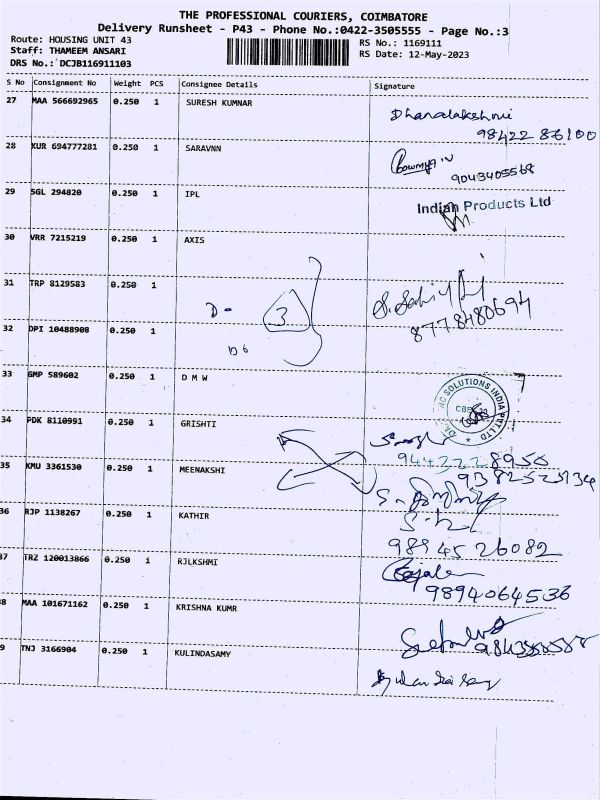 THE PROFESSIONAL COURIERS, COIMBATORE
Delivery Runsheet - P43 - Phone No.:0422-3505555 - Page No.:3
Route: HOUSING UNIT 43
RS No.: 1169111
Staff: THAMEEM ANSARI
RS Date: 12-May-2023
DRS No.: DCJB116911103
S No Consignment No Weight PCS Consignee Details Signature
27 MAA 566692965 0.250 1 SURESH KUMNAR
Dhanalakshmi
98422 86100
28 KUR 694777281 0.250 1 SARAVNN
Sowmya N
9043405568
29 SGL 294820 0.250 1 IPL
Indian Products Ltd
30 VRR 7215219 0.250 1 AXIS
31 TRP 8129583 0.250 1
D-
3
8778480694
32 DPI 10488908 0.250 1
D6
33 GMP 589602 0.250 1 D M W
SOLUTIONS INDIA PVT.LTD
34 PDK 8110991 0.250 1 GRISHTI
9442228956
35 KMU 3361530 0.250 1 MEENAKSHI
9382525134
36 RJP 1138267 0.250 1 KATHIR
98945 26082
37 TRZ 120013866 0.250 1 RJLKSHMI
9894064536
38 MAA 101671162 0.250 1 KRISHNA KUMR
39 TNJ 3166904 0.250 1 KULINDASAMY